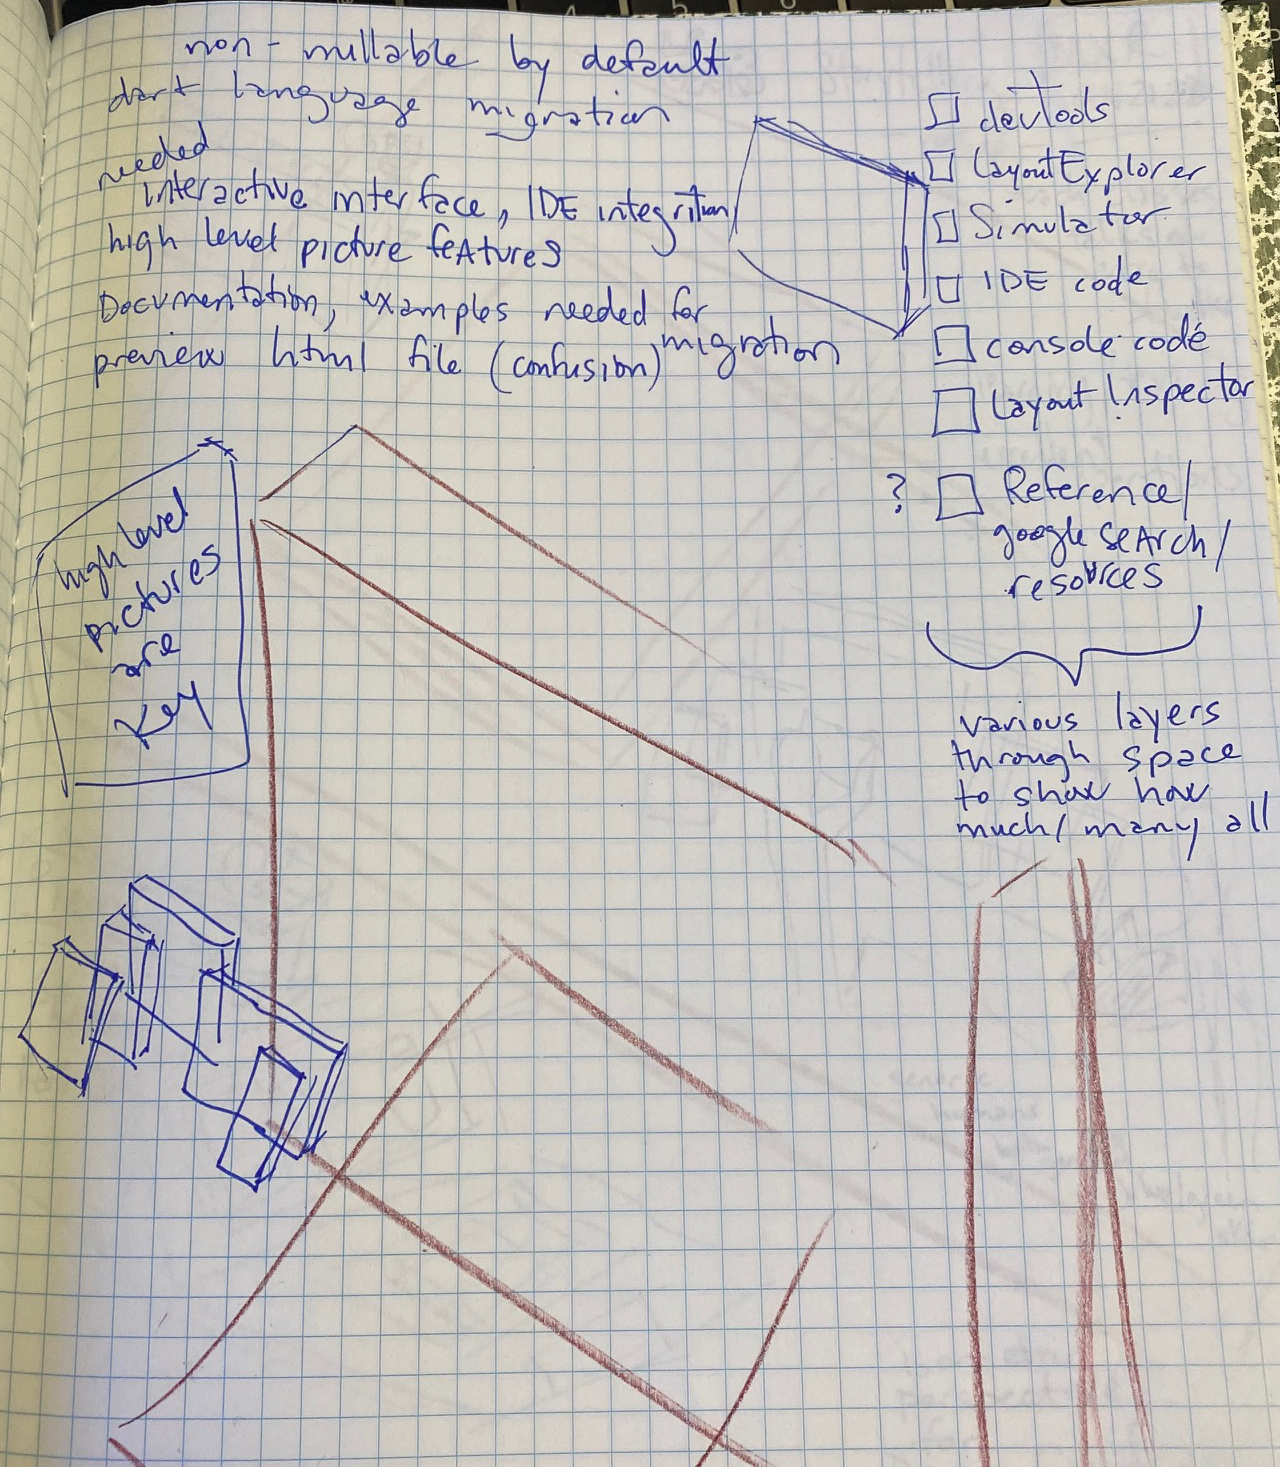 non-nullable by default
dart language migration
needed
interactive interface, IDE integrition
high level picture feAtures
Documentation, examples needed for
migration
preview html file (confusion)
□ devTools
□ LayoutExplorer
□ Simulator
□ IDE code
□ console code
□ Layout Inspector
? □ Reference/
google seArch/
resources
various layers
through space
to show how
much/many all
high level
pictures
are
Key